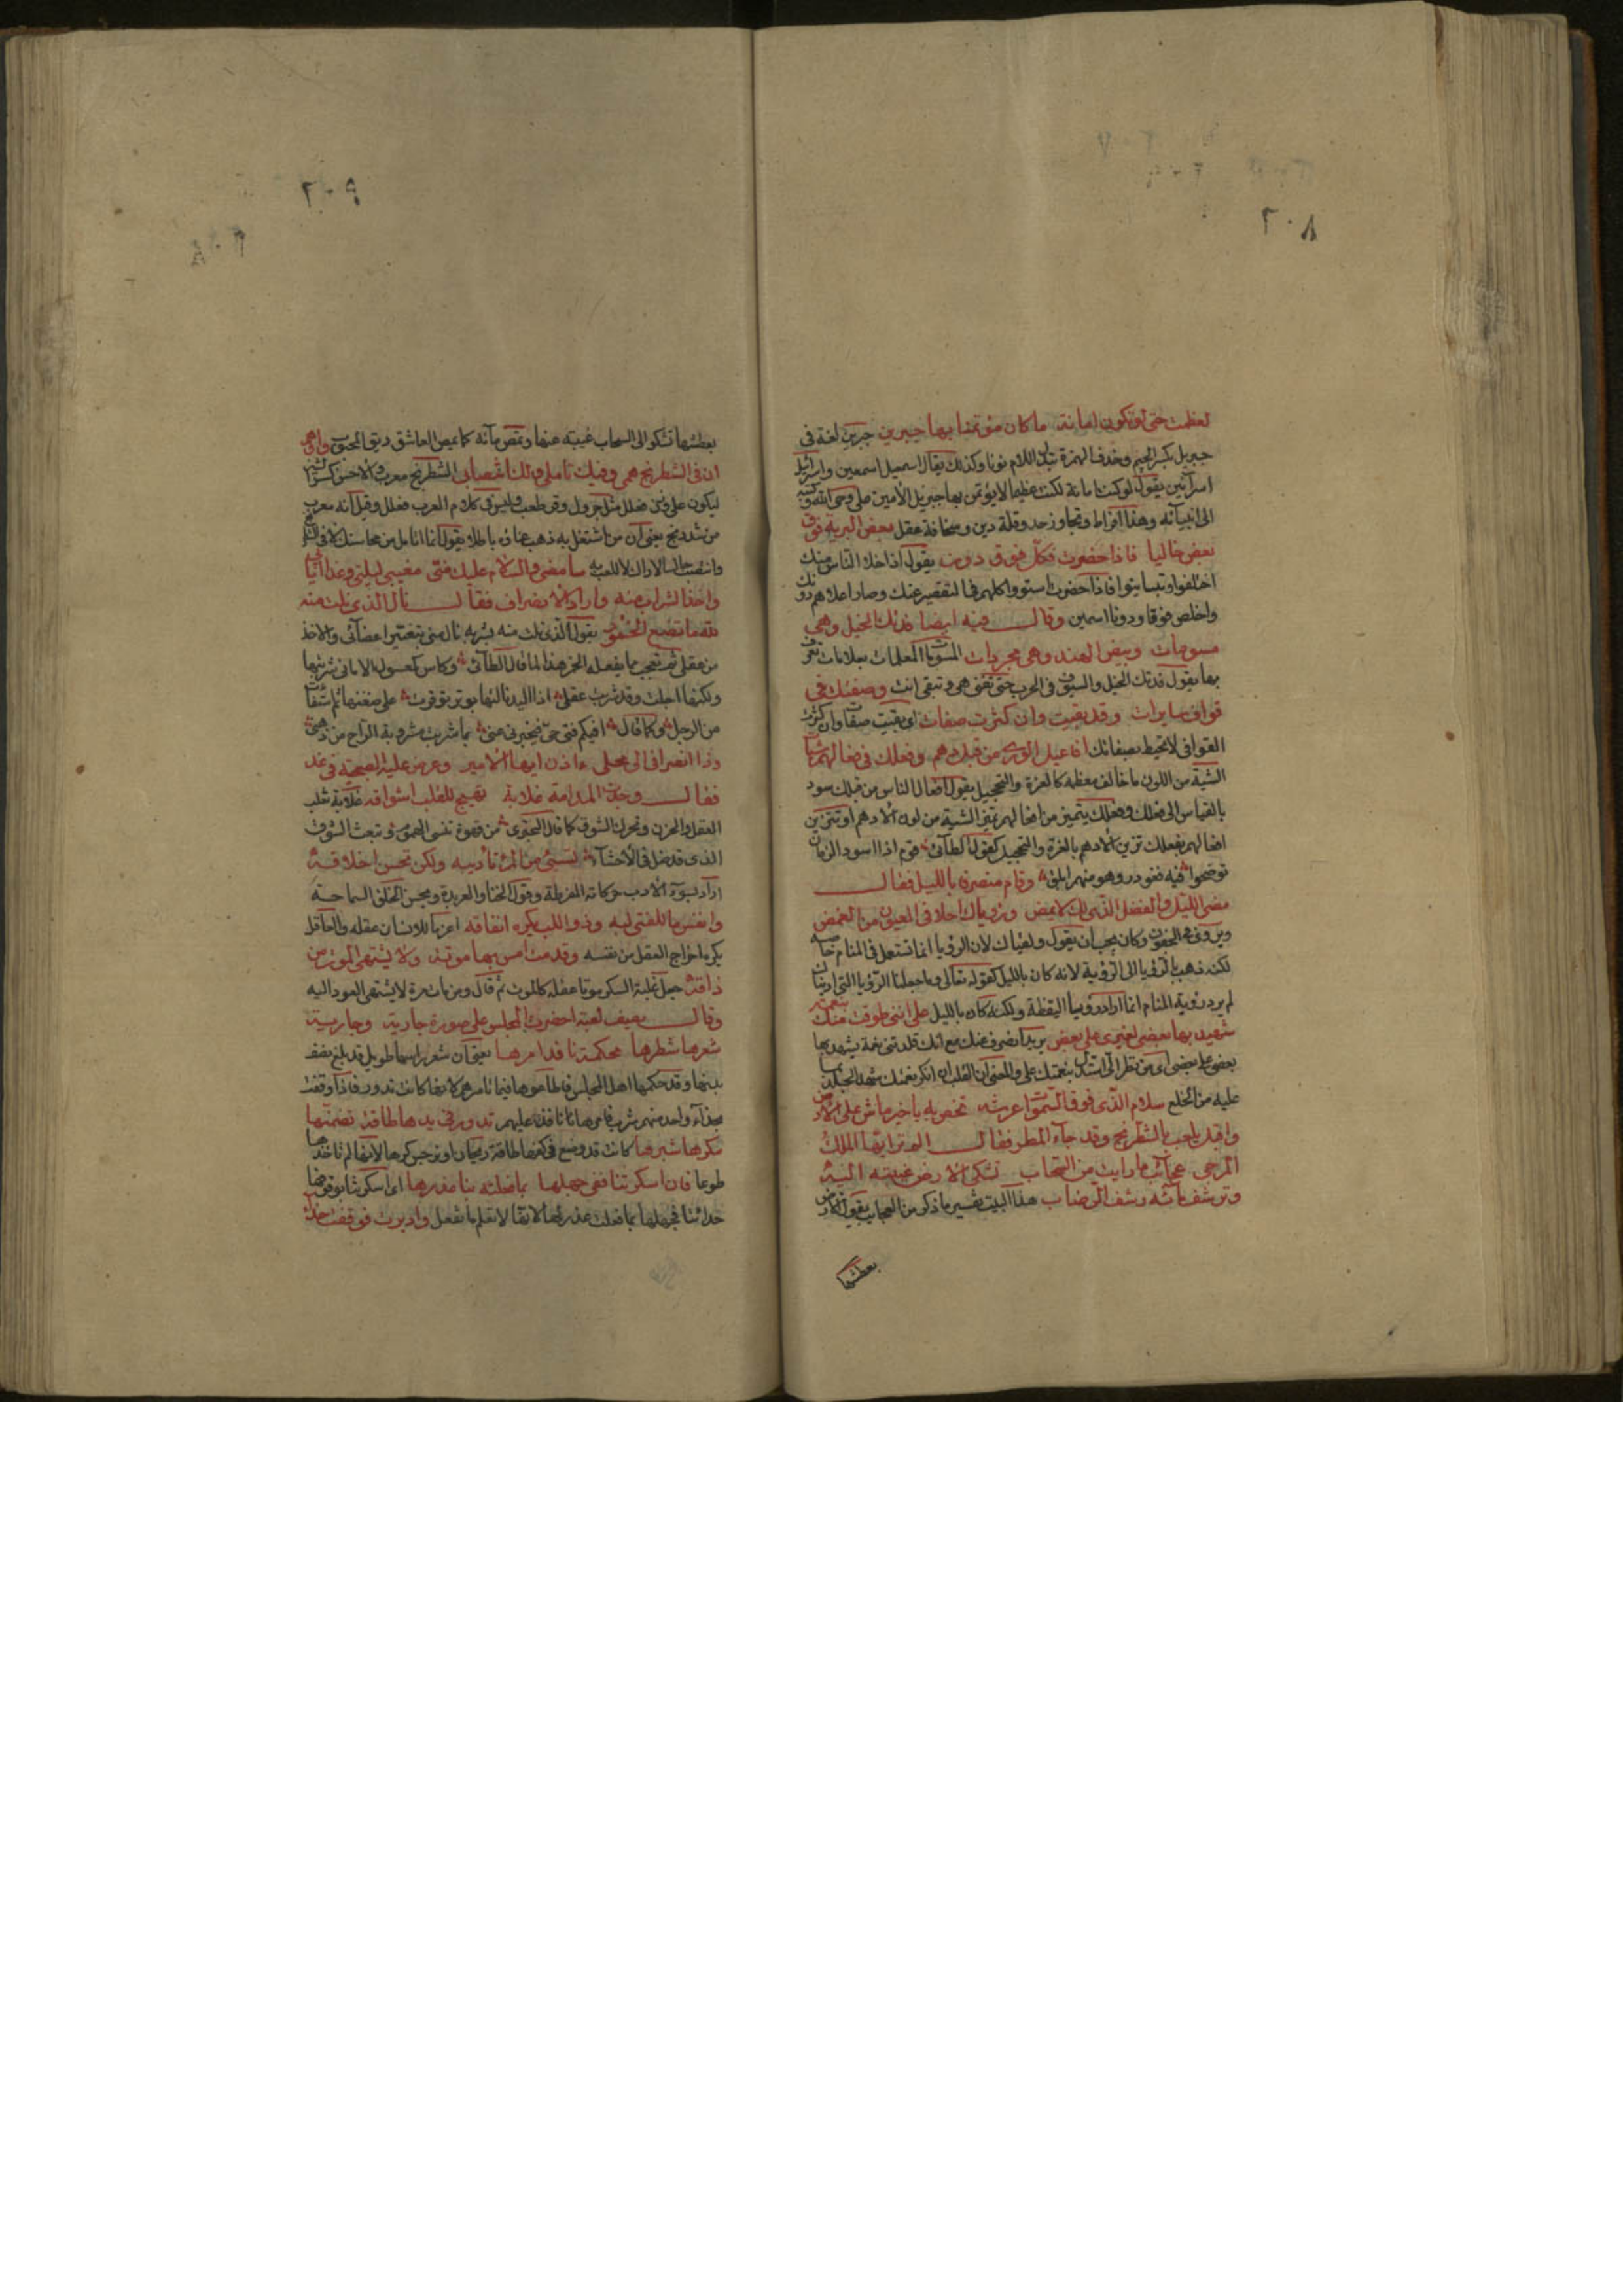 ٢٠٨
لعظمت حتى لو تكون امانة ما كان مؤتمنا بها جبرين جبرين لغة في
جبريل بكسر الجيم وحذف الهمزة بتبدل اللام نونا وكذلك يقال اسمعيل اسمعين واسرائيل
اسرآئين يقول لو كنت امانة لكنت عظيما لا يؤتمن بها جبريل الأمين على وحي الله وكتبه
الى انبيآئه وهذا افراط وتجاوز حد وقلة دين وسخافة عقل بعض البرية فوق
بعض خاليا فاذا حضرت فكل فوق دون يقول اذا خلا الناس منك
اختلفوا وتباينوا فاذا حضرت استووا كلهم في التقصير عنك وصار اعلاهم دونك
واخلص فوقا ودونا اسمين وقال فيه ايضا فدتك الخيل وهي
مسومات وبيض الهند وهي مجردات المسومات المعلمات بعلامات تعرف
بها يقول فدتك الخيل والسيوف في الحرب حتى تفنى هي وتبقى انت وصفتك في
قواف سايرات وقد بقيت وان كثرت صفات اي بقيت صفات وان كثرت
القوافي لا تحيط بصفاتك افاعيل الورى من قبل دهم وفعلك في فعالهم شيات
الشية من اللون ما خالف معظمه كالغرة والتحجيل يقول افعال الناس من قبلك سود
بالقياس الى فعلك وفعلك يتميز من افعالهم تميز الشية من لون الأدهم او تتزين
افعالهم بفعلك تزين الأدهم بالغرة والتحجيل كقول الطآئي قوم اذا اسود الزمان
توضحوا فيه فغودر وهو منهم ابلق وقام منصرفا بالليل فقال
مضى الليل والفضل الذي لك لا يمضي ورؤياك احلى في العيون من الغمض
ويروى في الجفون وكان يجب ان يقول ولقياك لان الرؤيا انما تستعمل في المنام خاصة
لكنه ذهب بالرؤيا الى الرؤية لانه كان بالليل كقوله تعالى وما جعلنا الرؤيا التي اريناك
لم يرد رؤية المنام انما اراد رؤيا اليقظة ولكنه كان بالليل على انني طوقت منك بنعمة
شهيد بها بعضي لغيري على بعض يريد انصرف عنك مع انك قلدتني نعمة يشهد بها
بعضي على بعضي اي من نظر الي استدل بنعمتك علي والمعنى ان القلب ان انكر نعمتك شهد الجلد بما
عليه من الخلع سلام الذي فوق السموات عرشه تخص به يا خير ماش على الأرض
واقبل يلعب بالشطرنج وقد جآء المطر فقال الم تر ايها الملك
المرجى عجائب ما رايت من السحاب تشكى الأرض غيبته اليه
وترشف مآءه رشف الرضاب هذا البيت تفسير ما ذكر من العجايب يقول الأرض
بعطشها
٢٠٩
بعطشها تشكو الى السحاب غيبته عنها وتمص مآئه كما يمص العاشق ريق المحبوب واوهم
ان في الشطرنج همي وفيك تاملي ولك انتصابي الشطرنج معرب والاحسن كسر الشين
ليكون على وزن فعلل مثل جردحل وقرطعب وليس في كلام العرب فعلل وقيل انه معرب
من شدرنج يعني ان من اشتغل به ذهب عناؤه باطلا يقول انما اتامل من محاسنك لا في الشطرنج
وانتصب جالسا لاراك لا للعب به سامضي والسلام عليك مني مغيبي ليلتي وغدا ايابي
واخذ الشراب منه واراد الانصراف فقال نال الذي نلت منه
لله ما تصنع الخمور يقول الذي نلت منه بشربه نال مني بتغيير اعضآئي والاخذ
من عقلي ثم تعجب مما يفعله الخمر هذا لما قال الطآئي وكاس كمعسول الاماني شربتها
ولكنها اجلت وقد شربت عقلي اذا اليد نالتها بوتر توقرت على ضغنها ثم استقادت
من الرجل وكما قال افيكم فتى حي فيخبرني عني بما شربت مشروبة الراح من ذهني
وذا انصرافي الى محلي ءاذن ايها الأمير وعرض عليه الصحبة في غد
فقال وجدت المدامة غلابة تهيج للقلب اشواقه غلابة تغلب
العقل والحزن وتحرك الشوق كما قال البحتري من قهوة تنسي الهموم وتبعث الشوق
الذي قد ضل في الأحشآء تسيئ من المرء تأديبه ولكن تحسن اخلاقه
اراد بسوء الادب حركاته المفرطة وقول الخنا والعربدة وبحسن الخلق السماحة
وانفس ما للفتى لبه وذو اللب يكره انفاقه اعز ما للانسان عقله والعاقل
يكره اخراج العقل من نفسه وقد مت امس بها موتة ولا يشتهي الموت من
ذاقه جعل غلبة السكر موتا عقله كالموت ثم قال ومن مات مرة لا يشتهي العود اليه
وقال يصف لعبة احضرت المجلس على صورة جارية وجارية
شعرها شطرها محكمة نافذ امرها يعني ان شعر راسها طويل قد بلغ نصف
بدنها وقد حكمها اهل المجلس فاطاعوها فيما تامرهم لانها كانت تدور فاذا وقفت
بحذآء واحد منهم شرب فامرها نافذ عليهم تدور وفي يدها طاقة تضمنها
مكرها شبرها كانت قد وضع في كفها طاقة ريحان او نرجس كرها لأنها لم تاخذها
طوعا فان اسكرتنا ففي جهلها بما فعلته بنا عذرها اي اسكرتنا بوقوفها
حذائنا فجهلها بما فعلت عذر لها لانها لا تعلم ما تفعل وادبرت فوقفت حذآء